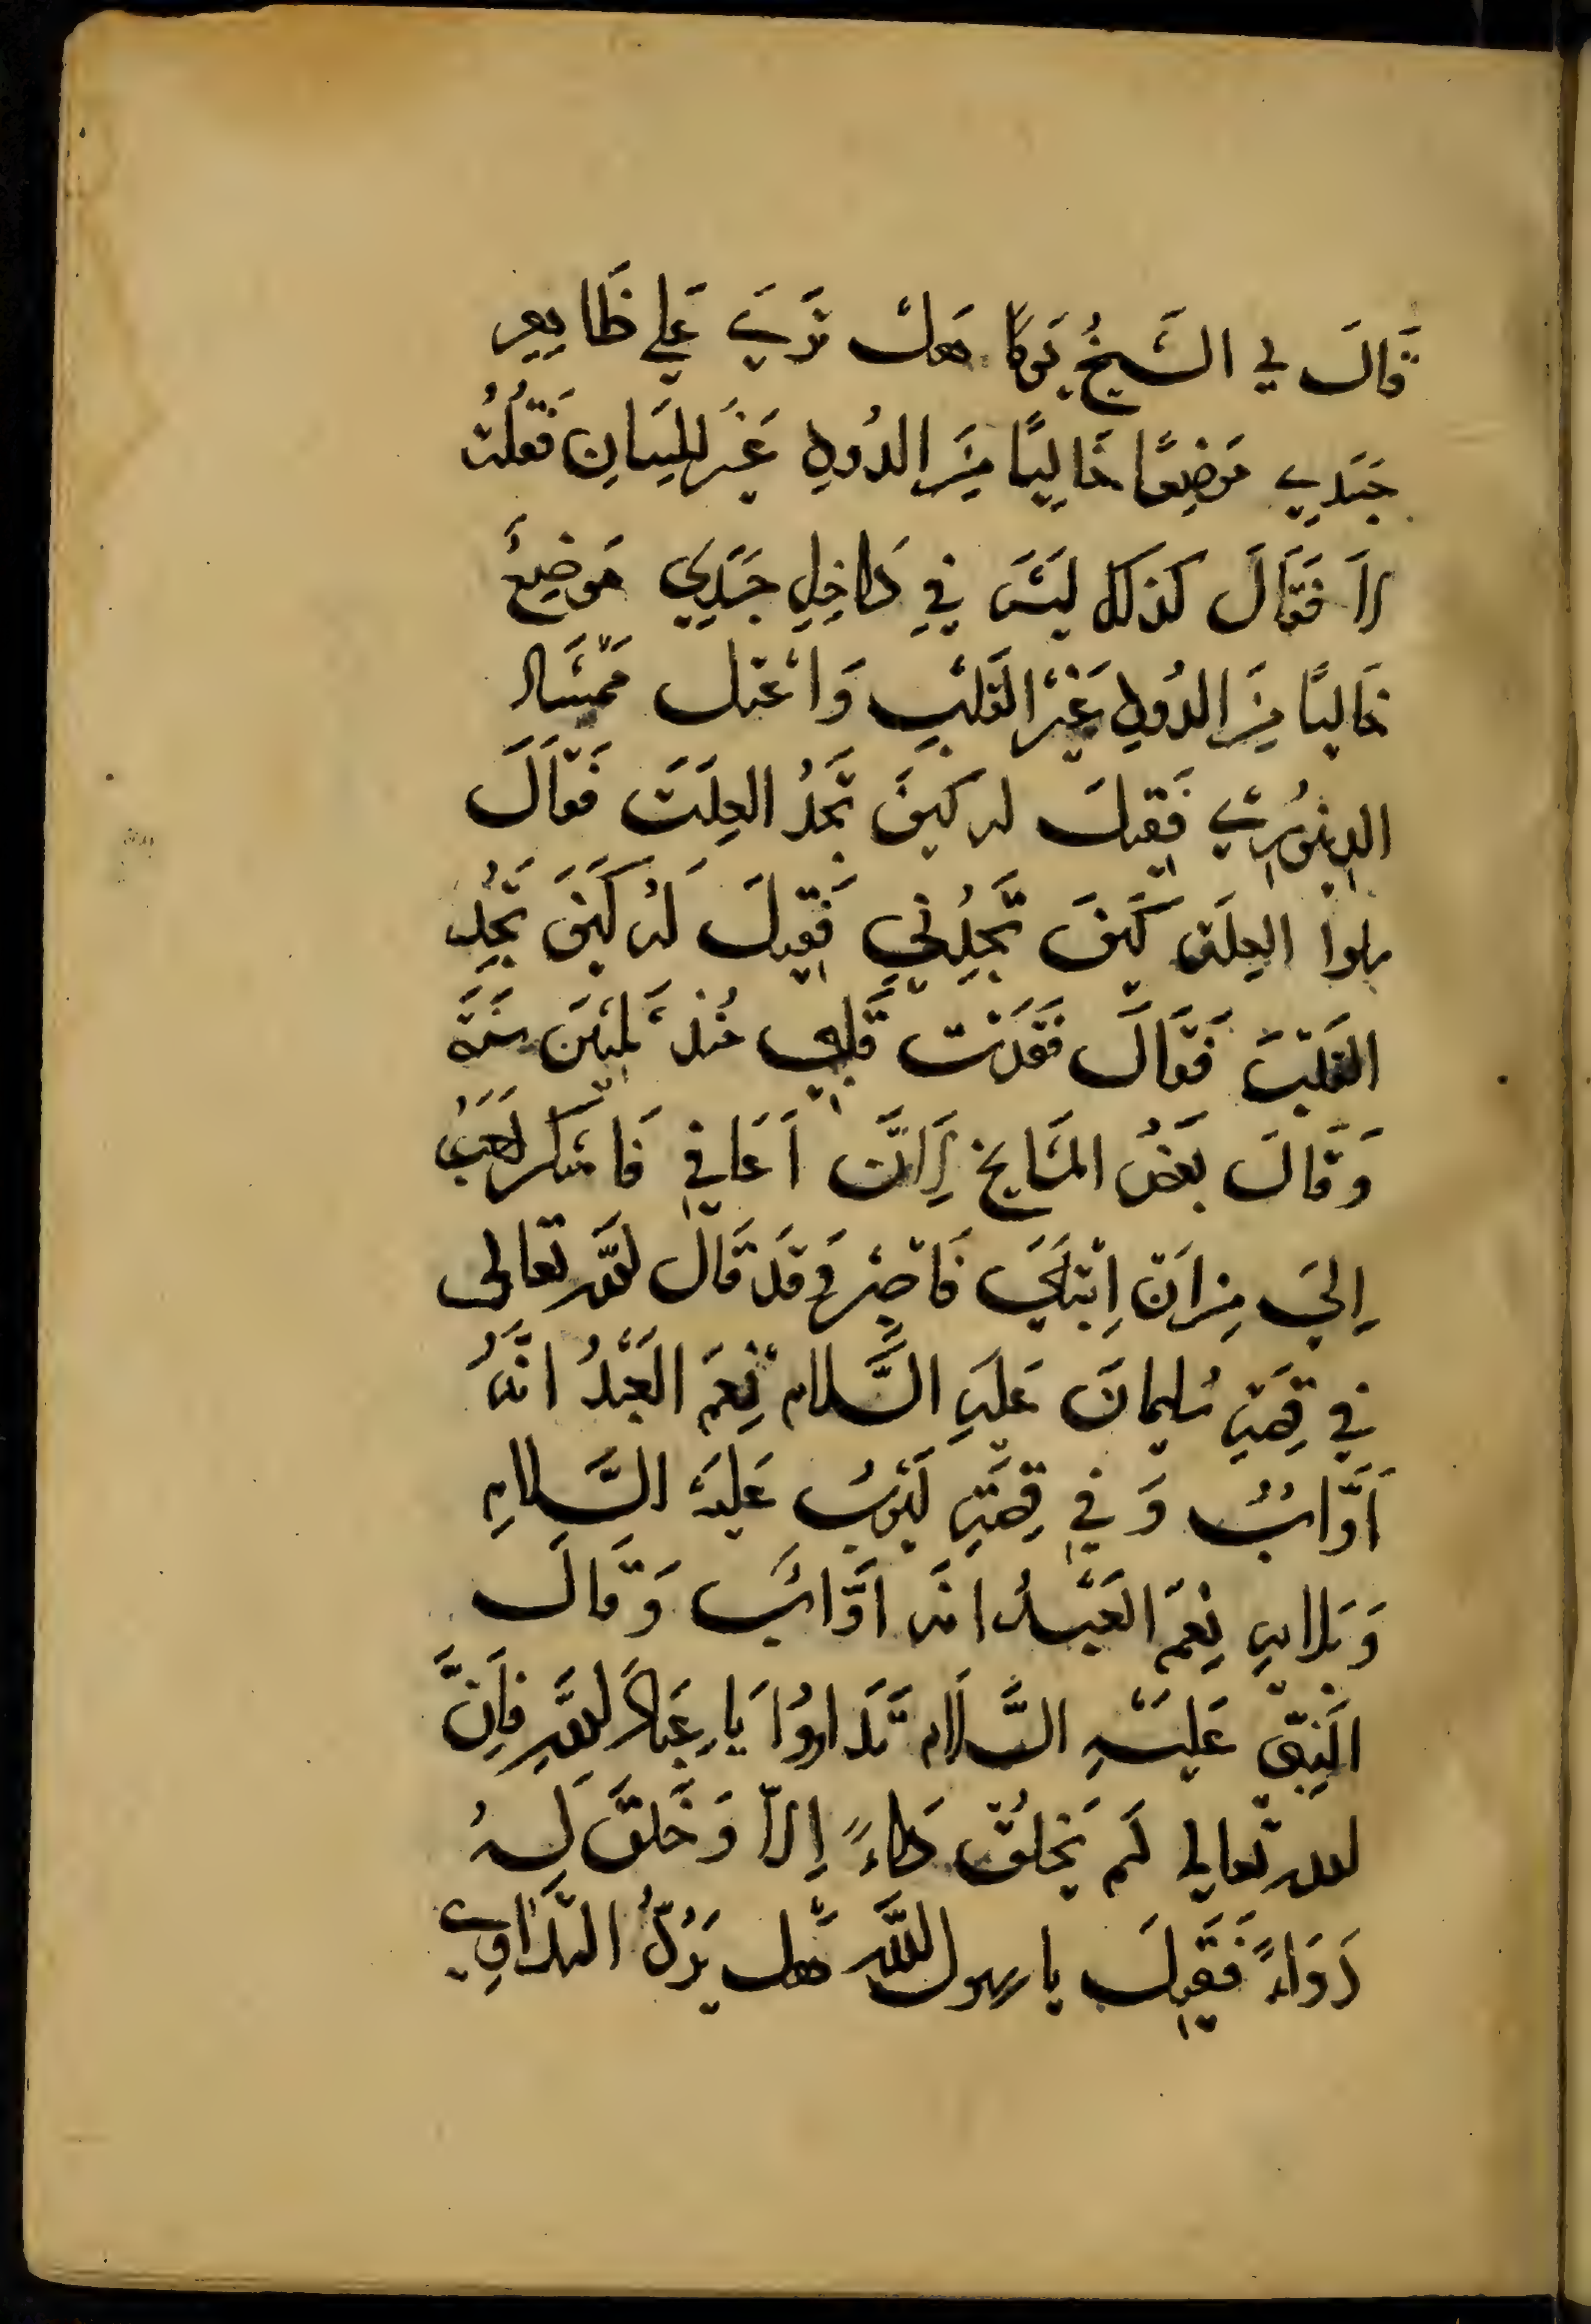 قَالَ لي الشَيخُ يَومًا هَل تَرَي عَلي ظَاهِرِ
جَسَدِي مَوضِعًا خَالِيًا مِنَ الدُودِ غَيرَ اللِسَانِ فَقُلتُ
لاَ فَقَالَ كذلك لَيسَ فِي دَاخِلِ جَسَدِي مَوضِعٌ
خَاليًا مِنَ الدُودِ غَيرَ القَلبِ وَاعتل مَمشَاد
الدِينَوُرِي فَقِيلَ له كيفَ تَجدُ العِلَتَ فَقَالَ
سلوا العِلَة كَيفَ تَجِدُني فَقِيلَ لَهُ كَيفَ تَجِدُ
القَلبَ فَقَالَ فَقَدتُ قَلبِي مُنذ ثَلثِين سَنَة
وَقَالَ بَعضُ المشَايخ لِاَن اَعَافي فَاشكر اَحَبُّ
اِليَ مِن اَن اِبتَلَي فَاصبِر وَقَد قَالَ الله تعالى
في قِصَةِ سُليمانَ عَليهِ السَّلام نِعمَ العَبدُ انَّهُ
اَوَّابٌ وَفي قِصَّةِ اَيوبُ عَلَيهِ السَّلامِ
وَبَلاءِهِ نِعمَ العَبدُ انهَ اَوَّابٌ وَقَالَ
النَبِيّ عَلَيهِ السَّلَام تَدَاوَوُا يَا عِبَادَ اللهِ فَاِنَّ
الله تعالي لَم يَخلُق دَاءً اِلاّ وَخَلقَ لَهُ
دَوَاءً فَقِيلَ يا رسول اللهَّ هَل يَرُدُّ التدَاوِي